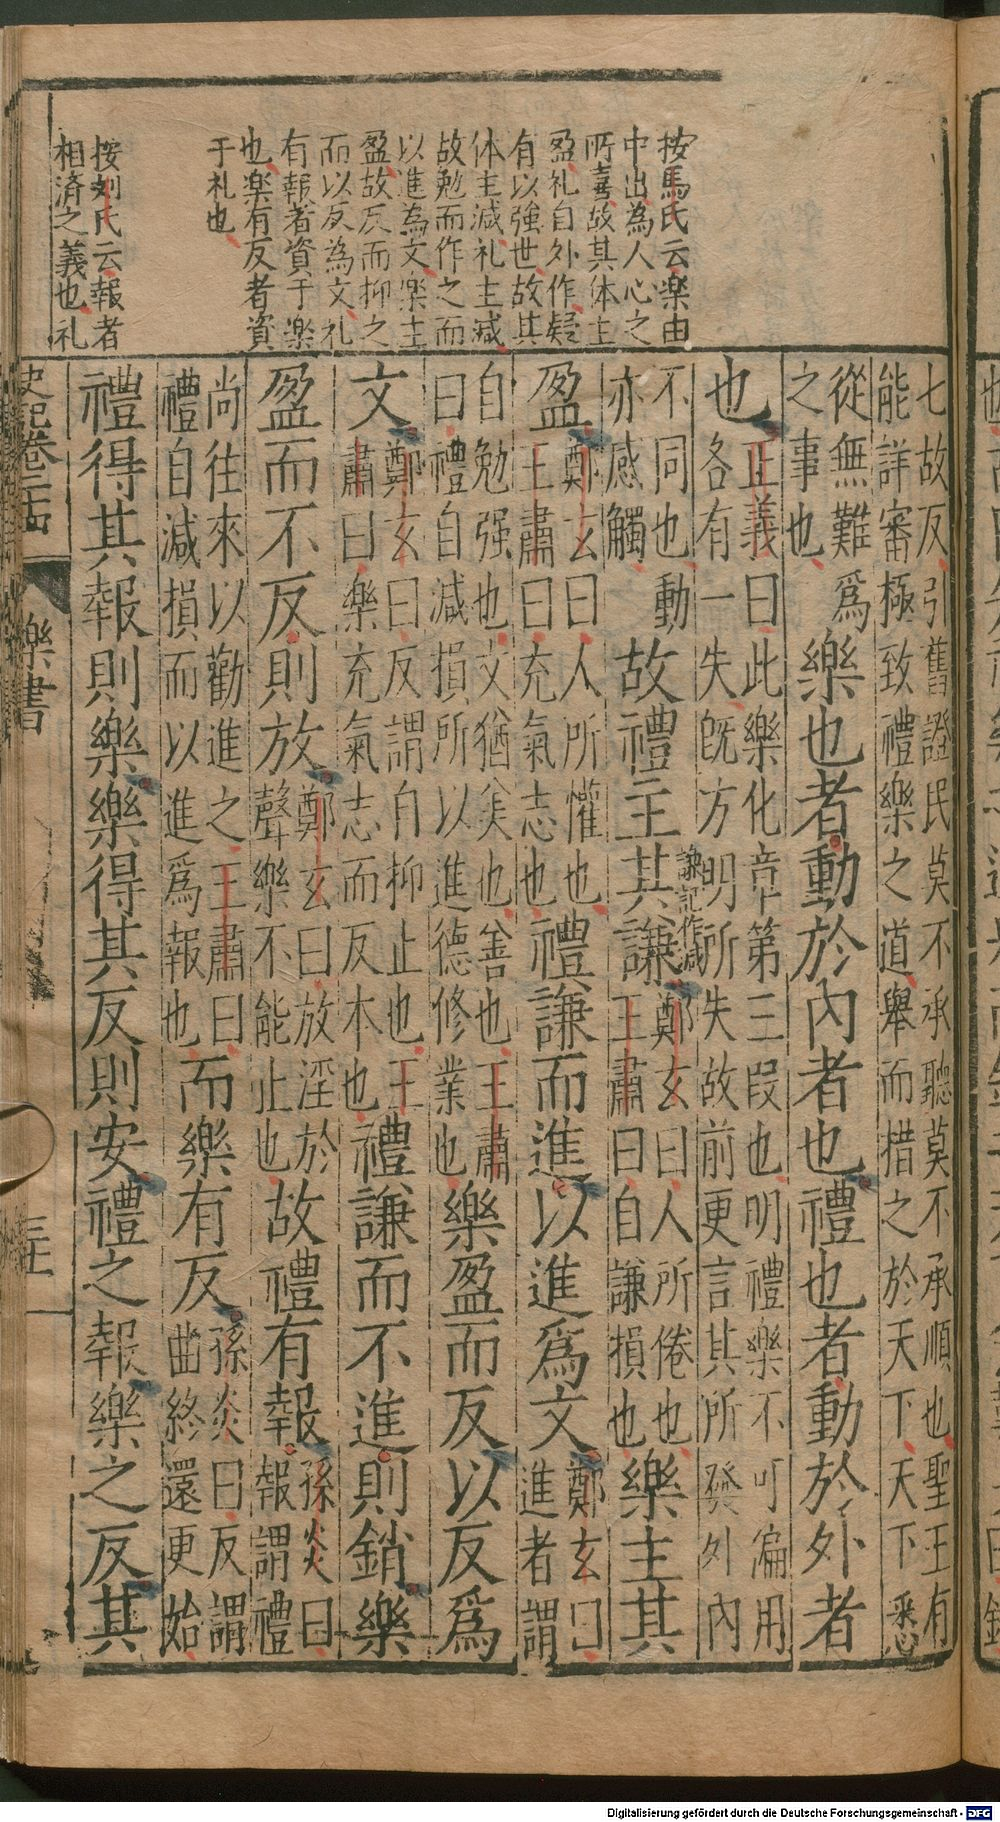 按馬氏云楽由
中出為人心之
所喜故其体主
盈礼自外作疑
有以強世故其
体主減礼主減
故勉而作之而
以進為文楽主
盈故反而抑之
而以反為文礼
有報者資于楽
也楽有反者資
于礼也
按刘氏云報者
相済之義也礼
七故反引舊證民莫不承聽莫不承順也聖王有
能詳審極致禮樂之道舉而措之於天下天下悉
從無難爲
之事也
樂也者動於內者也禮也者動於外者
也
正義曰此樂化章第三段也明禮樂不可徧用
各有一失旣方明所失故前更言其所發外內
不同也動
亦感觸
故禮主其謙
謙記作減
鄭玄曰人所倦也
王肅曰自謙損也
樂主其
盈
鄭玄曰人所懽也
王肅曰充氣志也
禮謙而進以進爲文
鄭玄曰
進者謂
自勉强也文猶美也善也王肅
曰禮自減損所以進德修業也
樂盈而反以反爲
文
鄭玄曰反謂自抑止也王
肅曰樂充氣志而反本也
禮謙而不進則銷樂
盈而不反則放
鄭玄曰放淫於
聲樂不能止也
故禮有報
孫炎曰
報謂禮
尚往來以勸進之王肅曰
禮自減損而以進爲報也
而樂有反
孫炎曰反謂
曲終還更始
禮得其報則樂樂得其反則安禮之報樂之反其
史記卷二四
樂書
三十
Digitalisierung gefördert durch die Deutsche Forschungsgemeinschaft - DFG